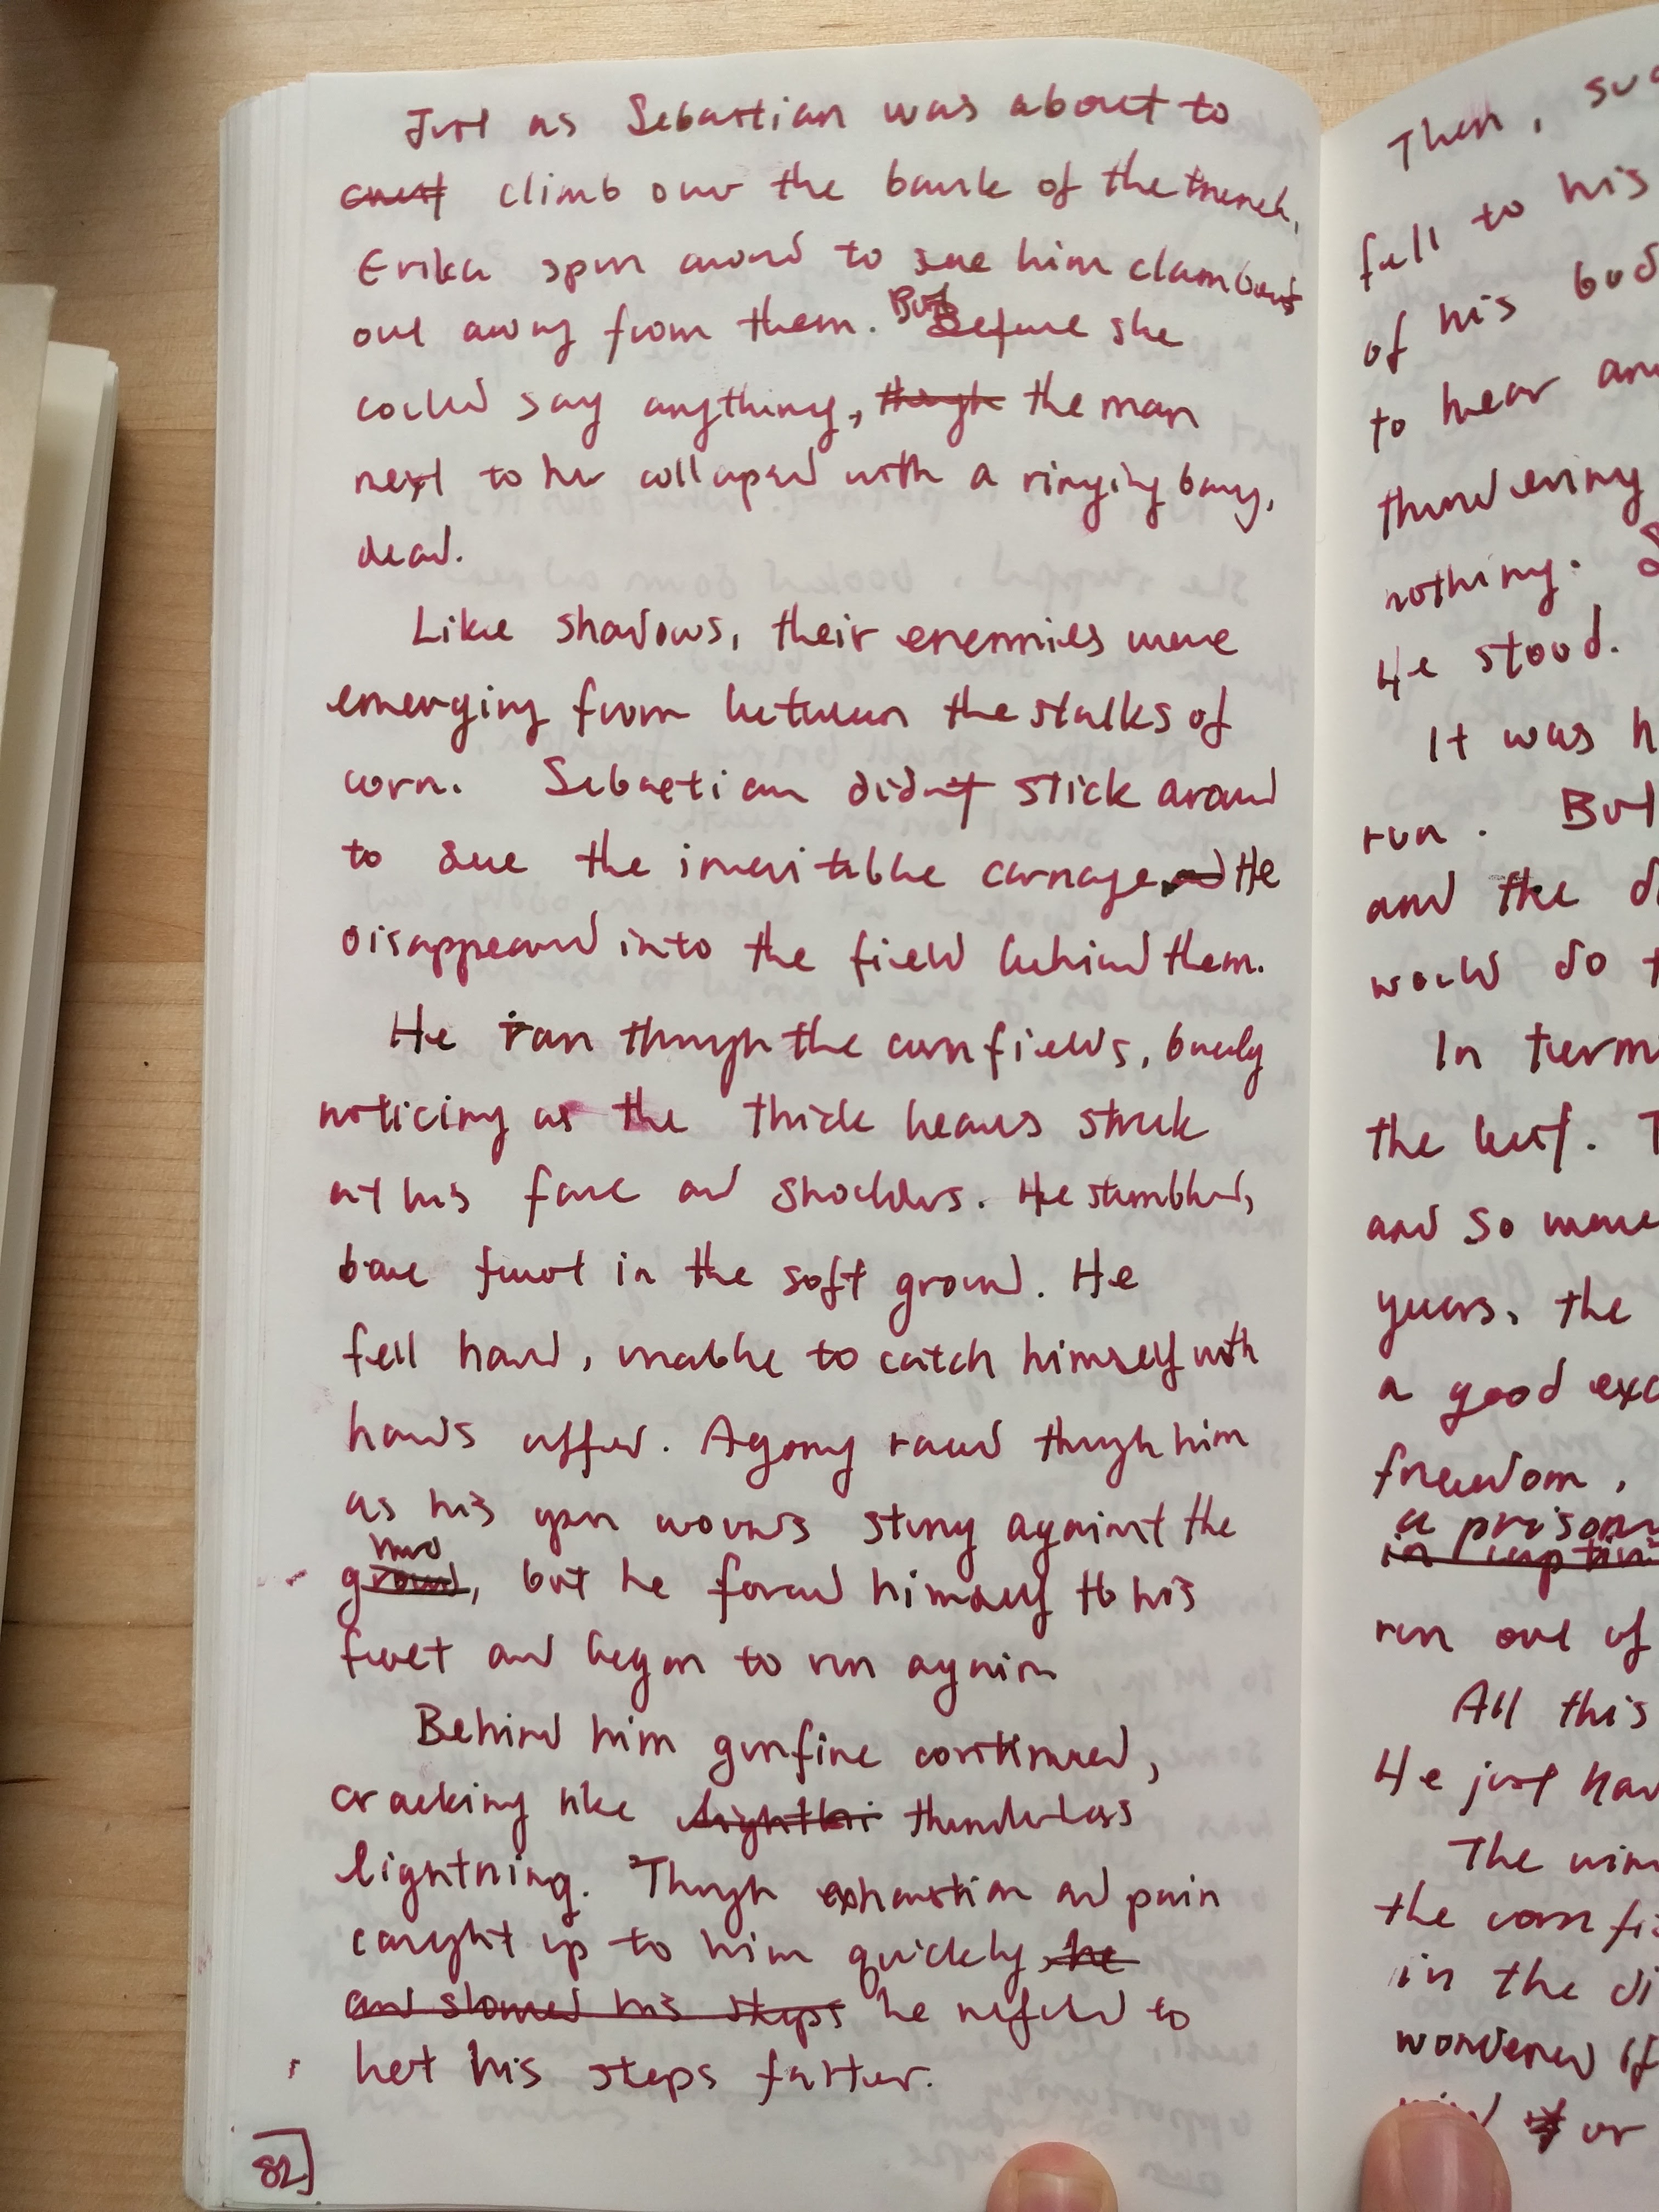 Just as Sebastian was about to
climb over the bank of the trench,
Erika spun around to see him clambers
out away from them. But Before she
could say anything, though the man
next to her collapsed with a ringing bang,
dead.
Like shadows, their enemies were
emerging from between the stalks of
corn. Sebastian didn't stick around
to see the inevitable carnage and He
disappeared into the field behind them.
He ran through the cornfields, barely
noticing as the thick leaves struck
at his face and shoulders. He stumbled,
bare foot in the soft ground. He
fell hard, unable to catch himself with
hands cuffed. Agony raced through him
as his open wounds stung against the
ground, hard but he forced himself to his
feet and began to run again
Behind him gunfire continued,
cracking like thunderless
lightning. Though exhaustion and pain
caught up to him quickly, he
and slowed his steps he refused to
let his steps falter.
82
Then,
fell to his
of his
to hear
thundering
nothing.
He stood.
It was
run. But
and the
would do
In
the last.
and so
years, the
a good
freedom,
a
in
run out of
All this
He just
The
the
in the
wondered if
or